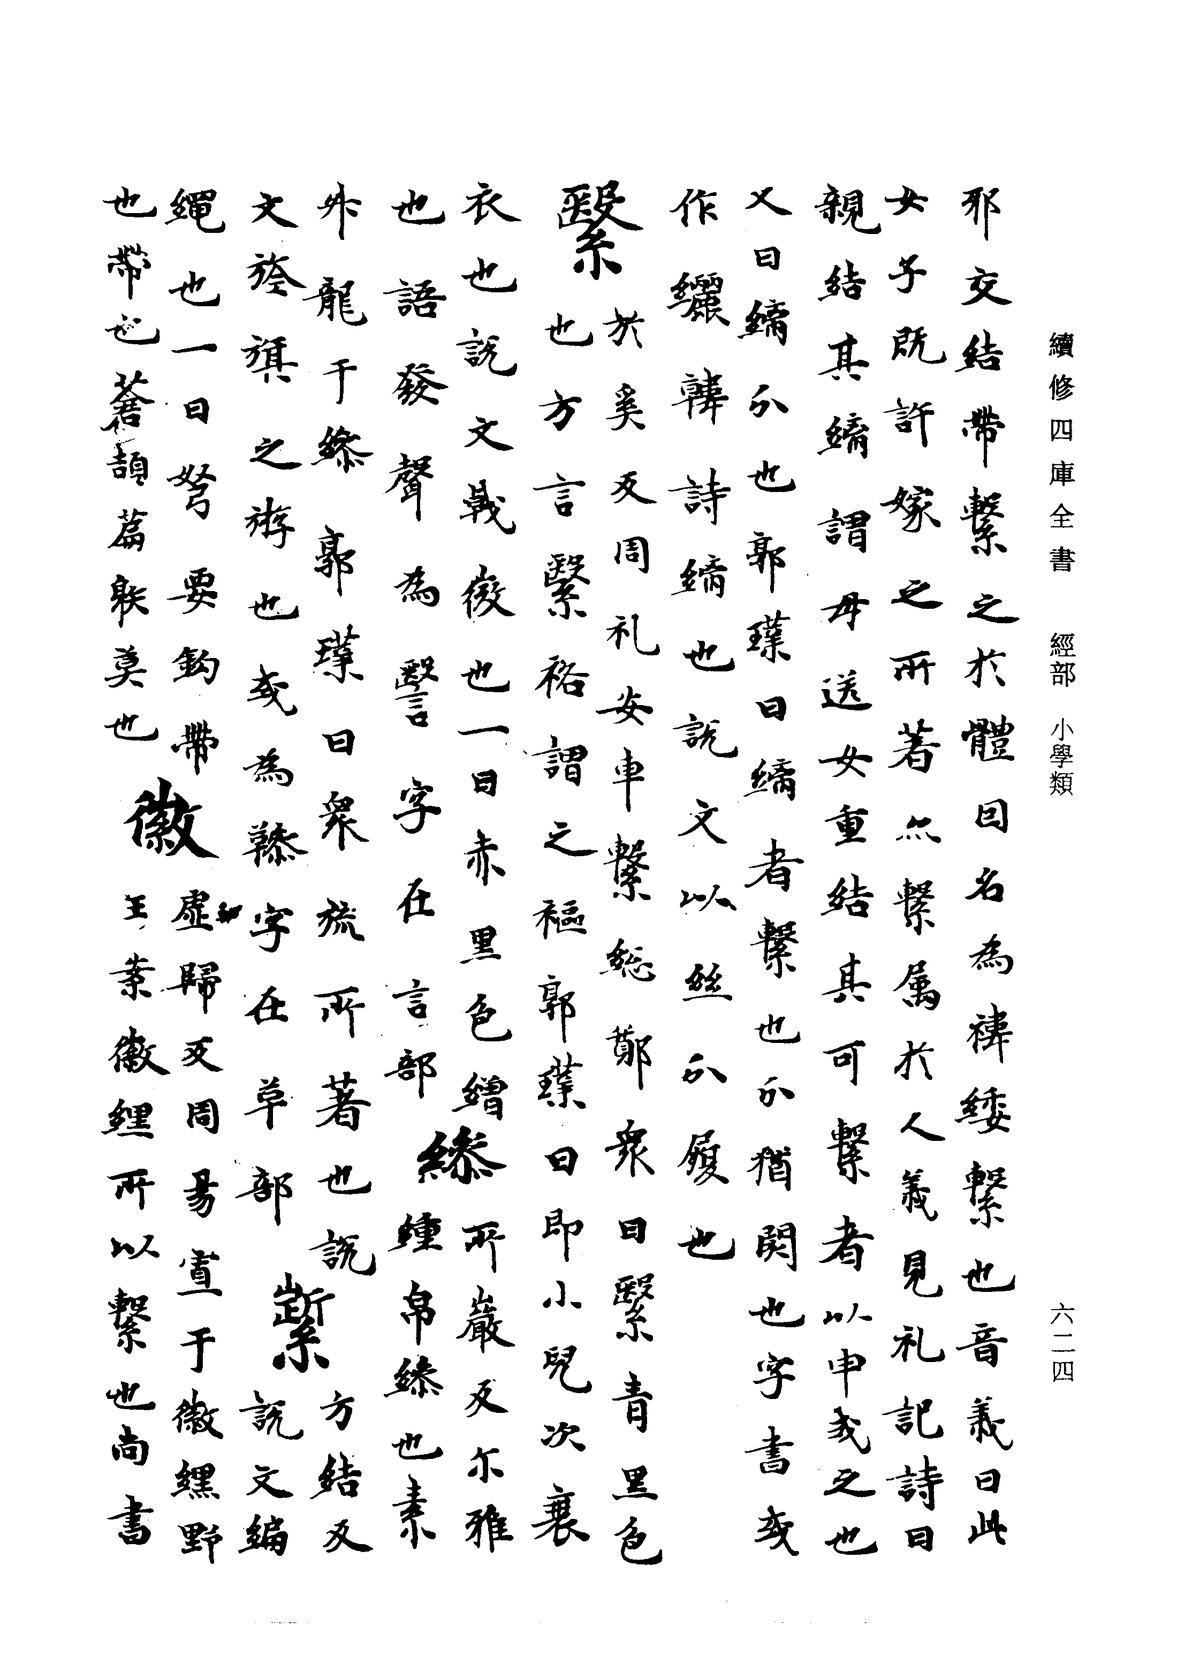 續修四庫全書 經部 小學類 六二四
邪交結帶繫之於體因名為褘緌繫也音義曰此
女子既許嫁之所著亦繫属於人義見礼記詩曰
親結其縭謂母送女重結其可繫者以申戒之也
又曰縭介也郭璞曰縭者繫也介猶閡也字書或
作纚韓詩縭也說文以絲介履也
繄於奚反周礼安車繫総鄭衆曰繄青黑色
也方言繄袼謂之樞郭璞曰即小兒次裹
衣也說文戟衣也一曰赤黑色繒
也語發聲為譬字在言部
縿所巖反尒雅纁帛縿也素
升龍于縿郭璞曰衆旒所著也說
文旌旗之游也或為䅟字在草部
䋎方結反說文編
繩也一曰弩要鈎帶也帶也蒼頡篇䠶莫也
徽虛歸反周易寘于徽纆野
王案徽纆所以繫也尚書